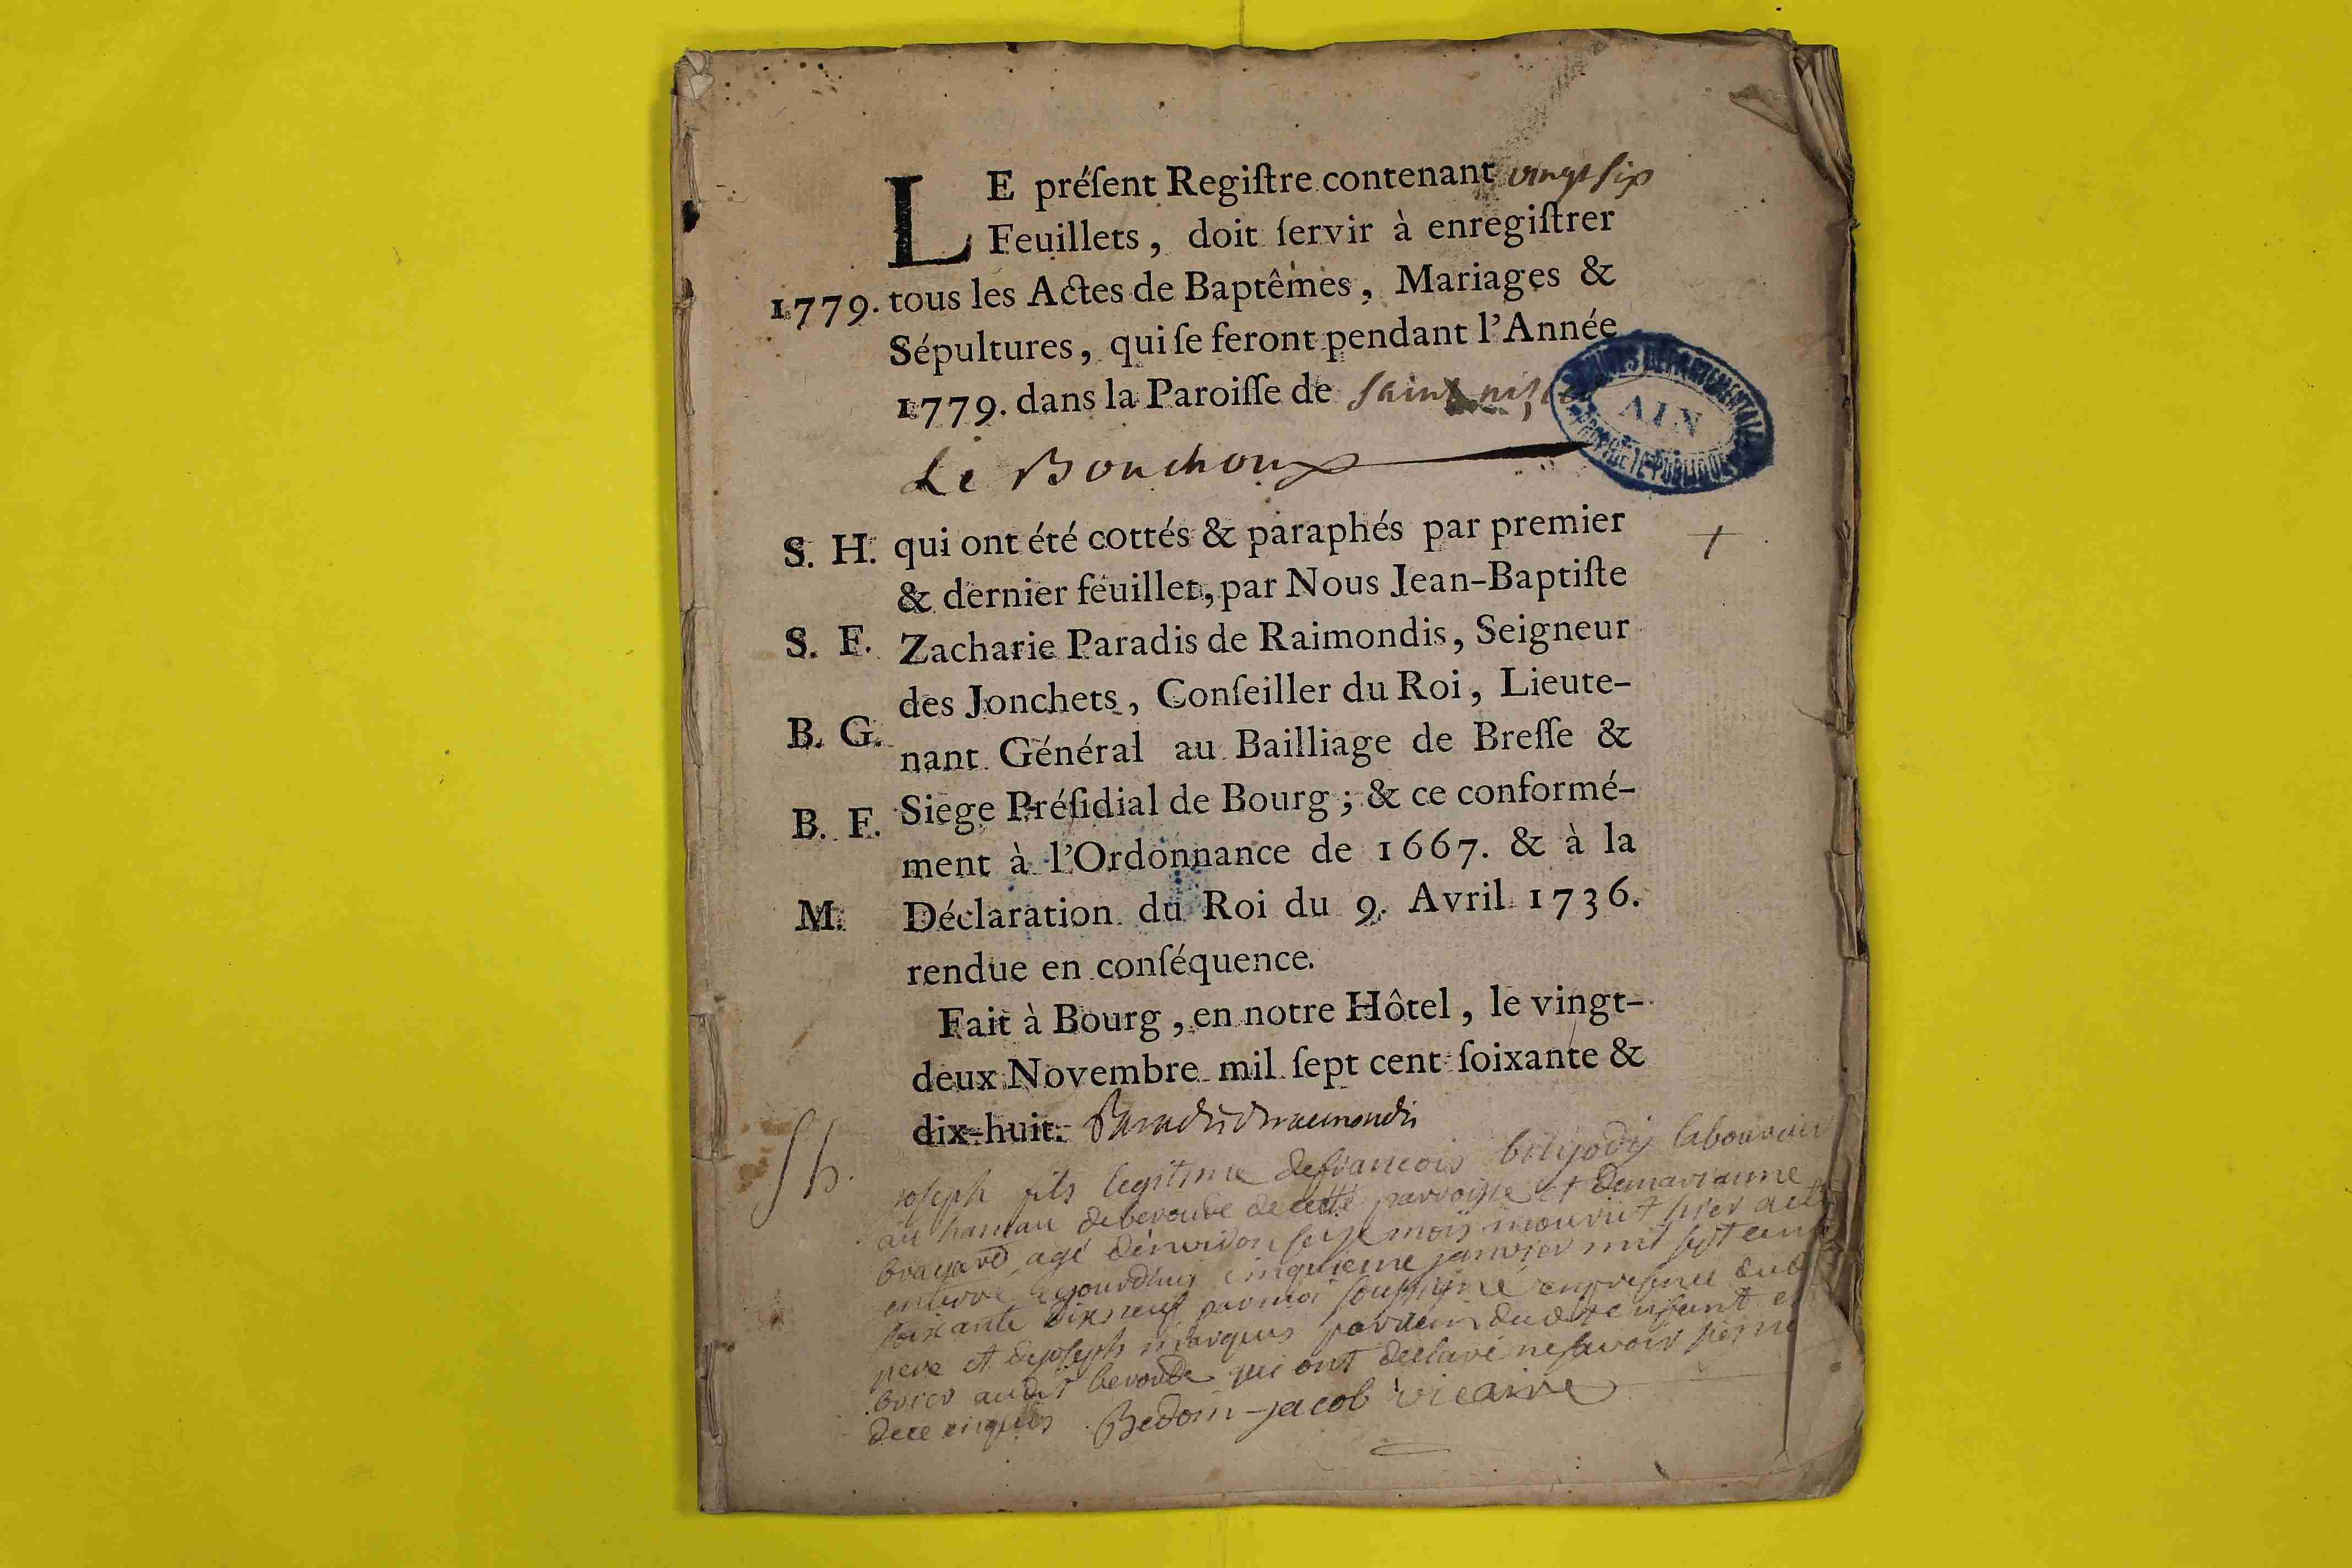 LE préſent Regiſtre contenant vingt ſix
Feuillets, doit ſervir à enregiſtrer
1779. tous les Actes de Baptêmes, Mariages &
Sépultures, qui ſe feront pendant l'Année
1779. dans la Paroiſſe de Saint
AIN
Le Bouchoux
S. H. qui ont été cottés & paraphés par premier
& dernier feuillet, par Nous Jean-Baptiſte
S. F. Zacharie Paradis de Raimondis, Seigneur
des Jonchets, Conſeiller du Roi, Lieute-
B. G. nant Général au Bailliage de Breſſe &
B. F. Siege Préſidial de Bourg; & ce conformé-
ment à l'Ordonnance de 1667. & à la
M. Déclaration du Roi du 9. Avril 1736.
rendue en conſéquence.
Fait à Bourg, en notre Hôtel, le vingt-
deux Novembre mil ſept cent ſoixante &
dix-huit. Paradis de raimondis
Sh. joseph fils legitime de francois laboureur
au hamau de cette parroisse et demarianne
brayard agé denviron seize mois mourut hier
enterré aujourdhuy cinquieme janvier mil sept cent
soixante dixneuf par moi soussigné en presence dud
pere et de joseph marquis parrein dudit enfant et
audit qui ont declaré ne savoir signer
dece enquis Bedoin-jacob vicaire